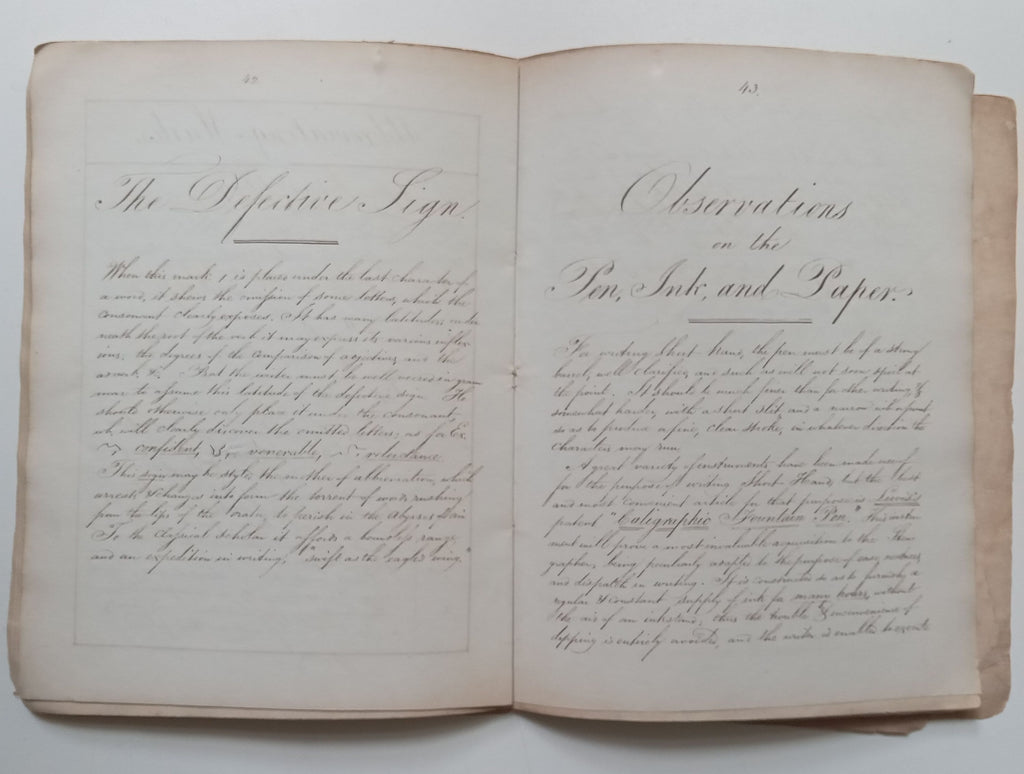 42.
The Defective Sign.
When this mark , is placed under the last character of
a word, it shews the omission of some letters, which the
consonant clearly exposes. It has many latitudes, under
neath the root of the verb it may express its various inflex
ions, the degrees of the comparison of adjectives, and the
adverb, &c. But the writer must be well versed in gram
mar to assume this latitude of the defective sign. He
should otherwise only place it under the consonant,
wh. will clearly discover the omitted letters; as for Ex.
confident, venerable, reluctance.
This sign may be styled the mother of abbreviation, which
arrests & changes into form the torrent of words rushing
from the lips of the orator, to perish in the abyss of air.
To the classical scholar it affords a boundless range,
and an expedition in writing, "swift as the eagles wing."
43.
Observations
on the
Pen, Ink, and Paper.
For writing Short hand, the pen must be of a strong
barrel, well clarified, and such as will not soon spoil at
the point. It should be much finer than for other writing, &
somewhat harder, with a short slit, and a narrow nib or point,
so as to produce a fine, clear stroke, in whatever direction the
characters may run.
A great variety of instruments have been made use of
for the purpose of writing Short Hand, but the best
and most convenient article for that purpose is
patent "Caligraphic Fountain Pen." This instru
ment will prove a most invaluable acquisition to the Steno
grapher, being peculiarly adapted to the purpose of easy neatness
and dispatch in writing. It is constructed so as to furnish a
regular & constant supply of ink for many hours, without
the aid of an inkstand; thus the trouble & inconvenience of
dipping is entirely avoided, and the writer is enabled to execute